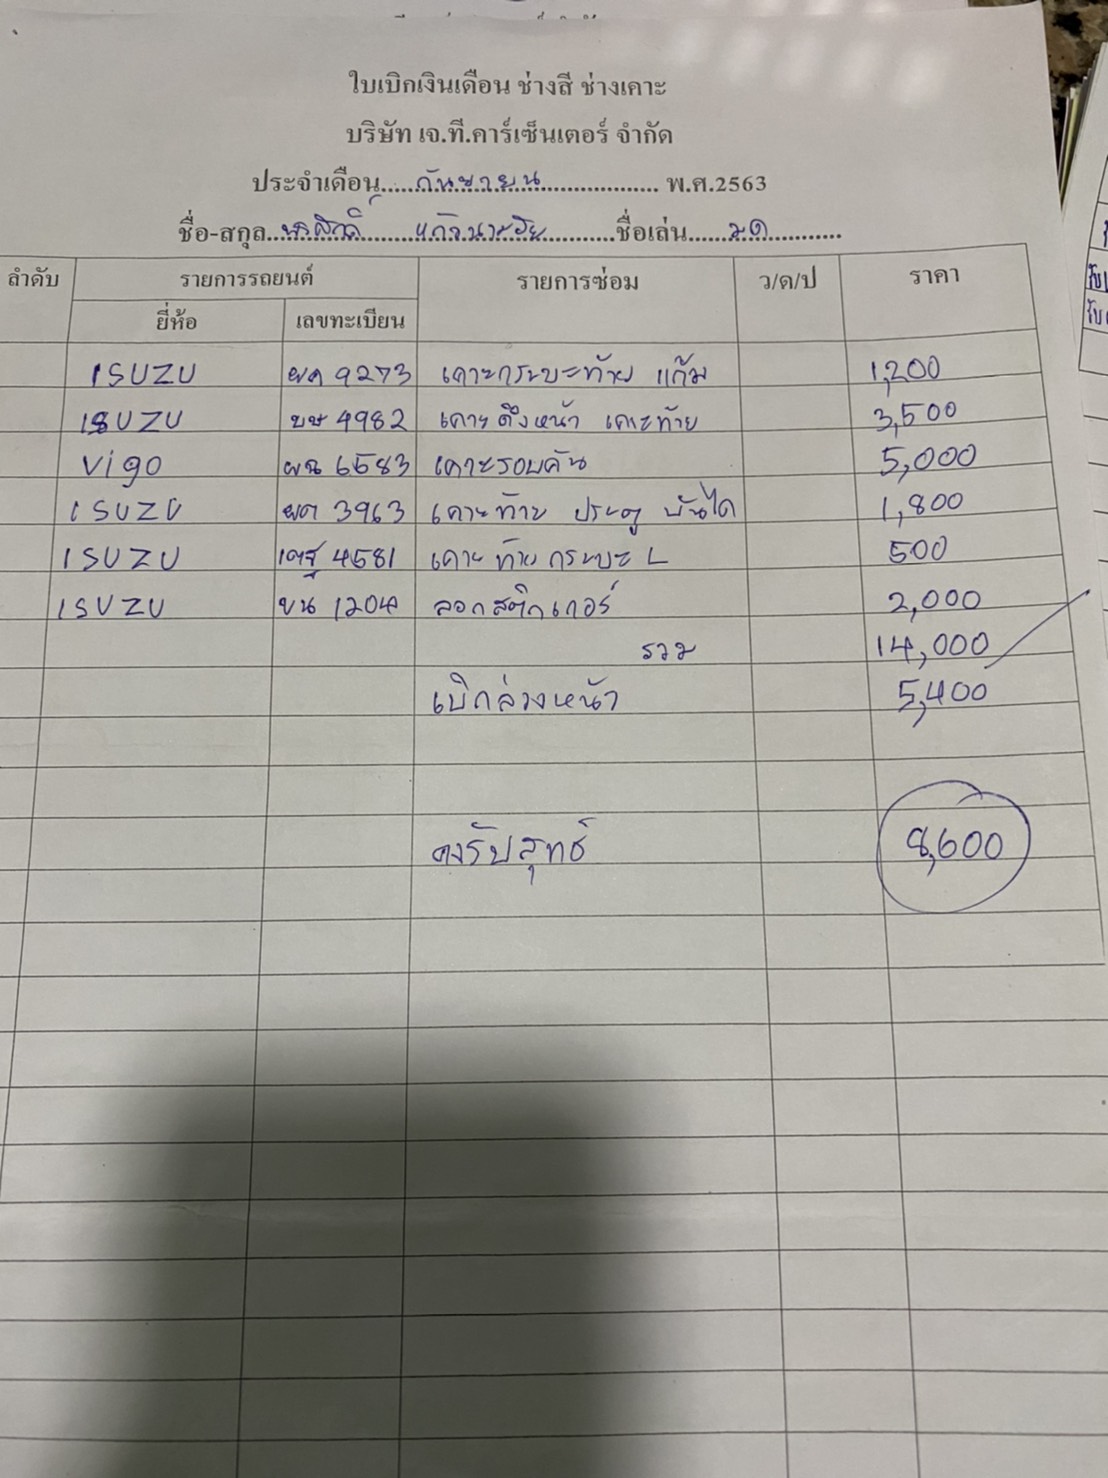 ใบเบิกเงินเดือน ช่างสี ช่างเคาะ
บริษัท เจ.ที.คาร์เซ็นเตอร์ จำกัด
ประจำเดือน.....กันยายน..... พ.ศ.2563
ชื่อ-สกุล..........ชื่อเล่น.....มด.....
ลำดับ รายการรถยนต์ รายการซ่อม ว/ด/ป ราคา
ยี่ห้อ เลขทะเบียน
ISUZU 9273 เคาะกระบะท้าย แก้ม 1,200
ISUZU บษ 4982 เคาะดึงหน้า เคาะท้าย 3,500
Vigo ผฉ 6583 เคาะรอบคัน 5,000
ISUZU 3963 เคาะท้าย ประตู บันได 1,800
ISUZU 4581 เคาะท้ายกระบะ L 500
ISUZU ขน 1204 ลอกสติกเกอร์ 2,000
รวม 14,000
เบิกล่วงหน้า 5,400
คงรับสุทธ์ 8,600